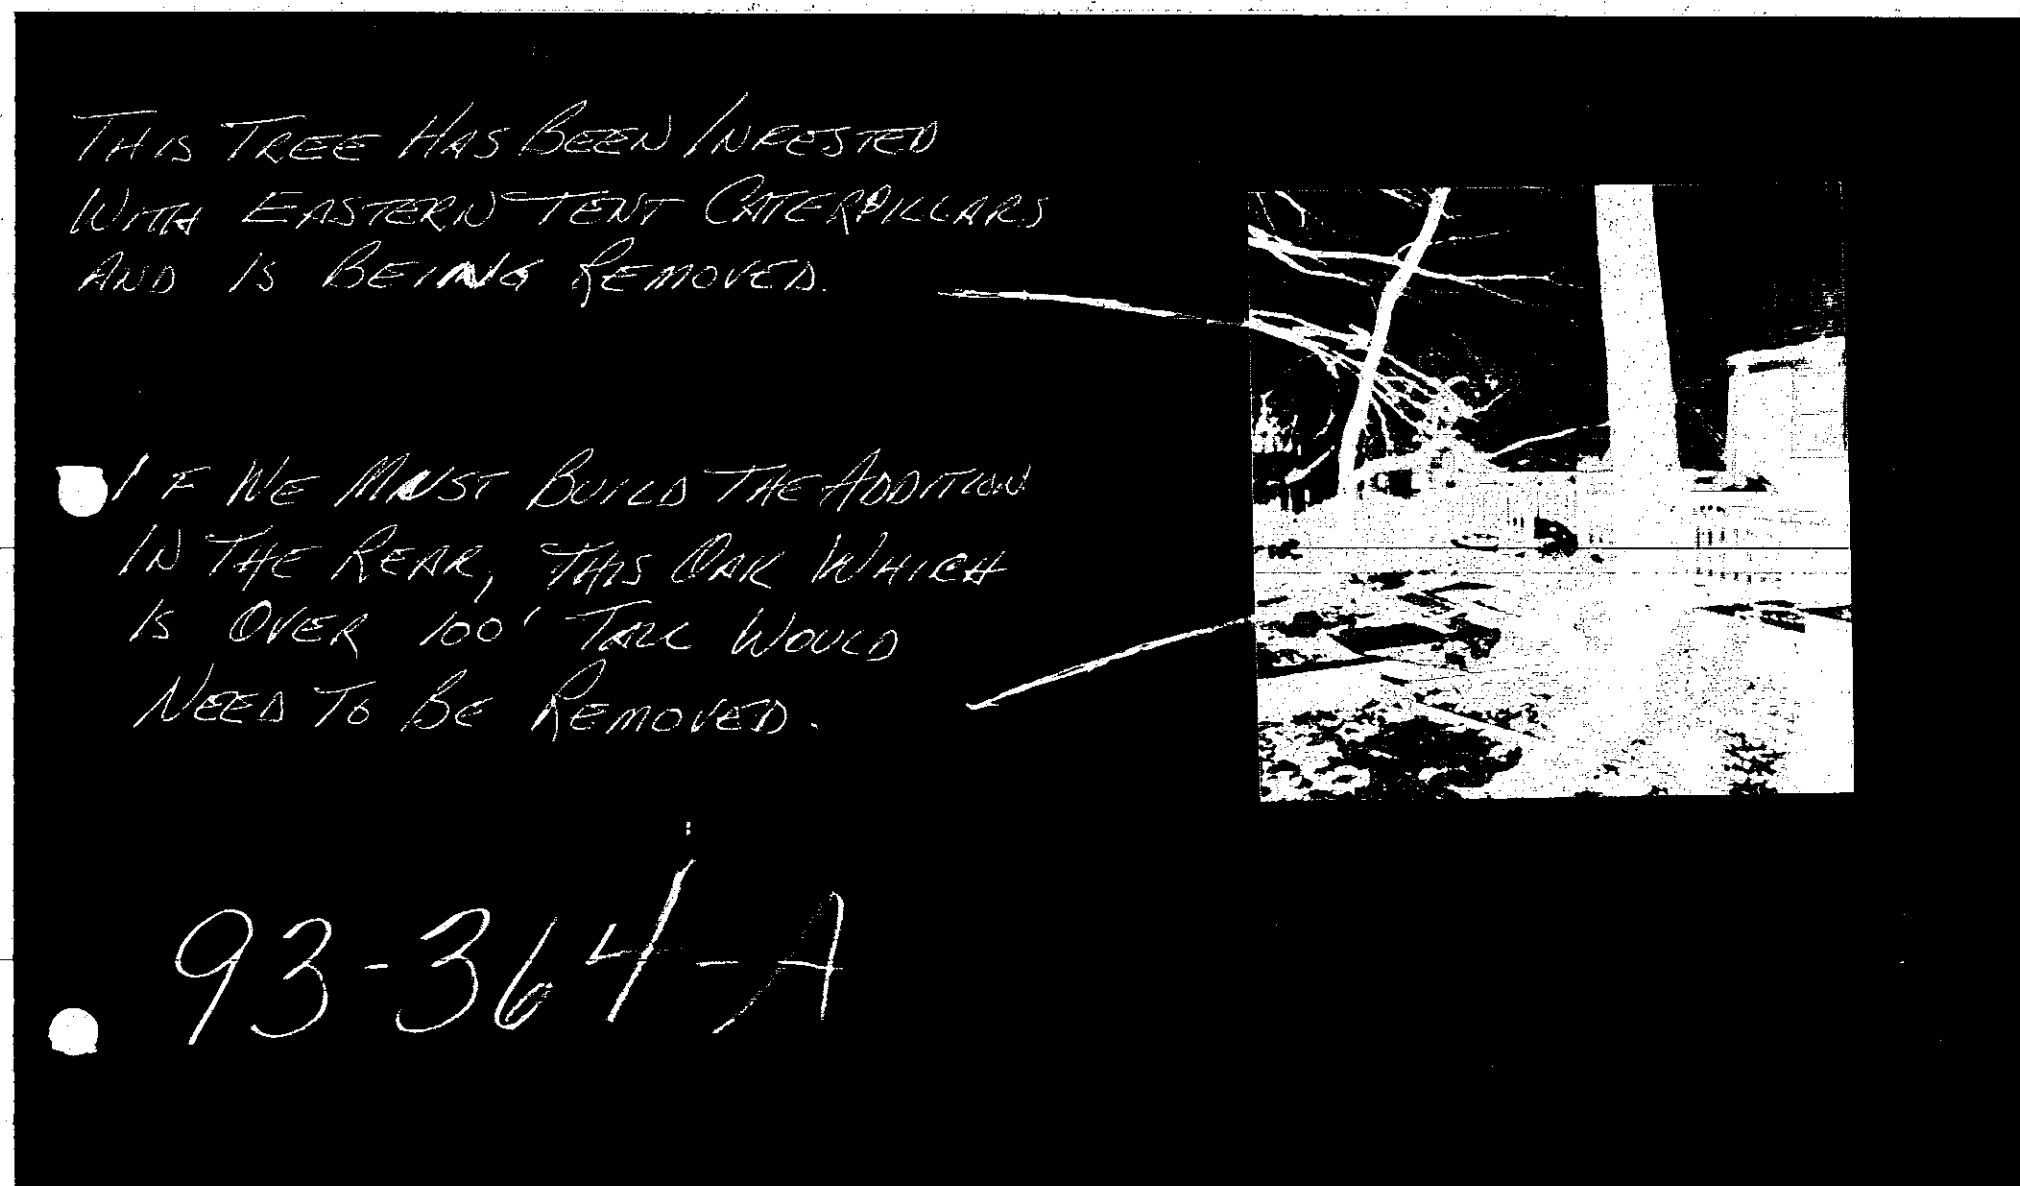 THIS TREE HAS BEEN INFESTED
WITH EASTERN TENT CATERPILLARS
AND IS BEING REMOVED.
IF WE MUST BUILD THE ADDITION
IN THE REAR, THIS OAK WHICH
IS OVER 100' TALL WOULD
NEED TO BE REMOVED.
93-364-A